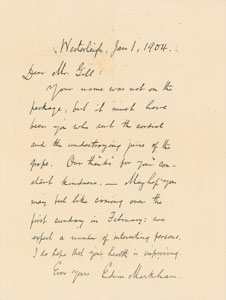 Westerleigh, Jan 1, 1904.
Dear Mr. Gill:
Your name was not on the
package, but it must have
been you who sent the cordial
and the undestroying juice of the
grape. Our thanks for your con-
stant kindness. — you
may feel like coming over the
first Sunday in February: we
expect a number of interesting persons.
I do hope that your health is improving.
Ever yours Edwin Markham.